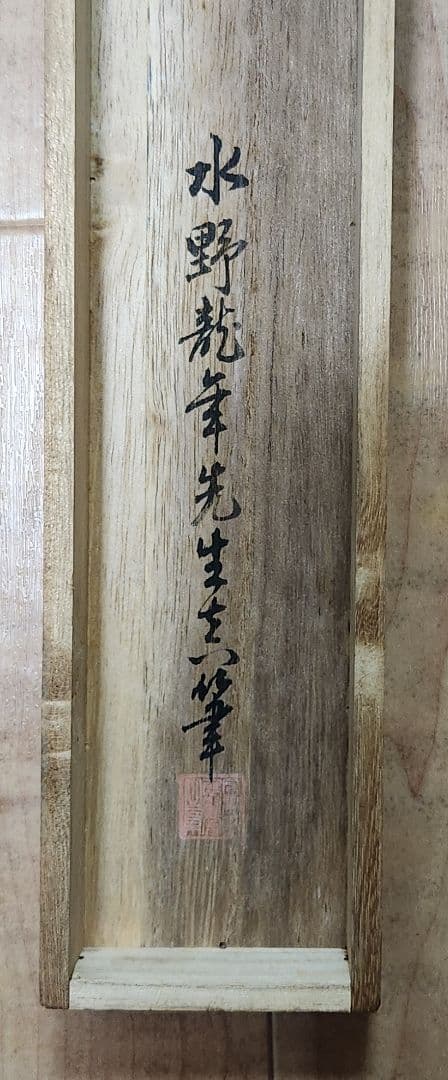 水野龍年先生真筆